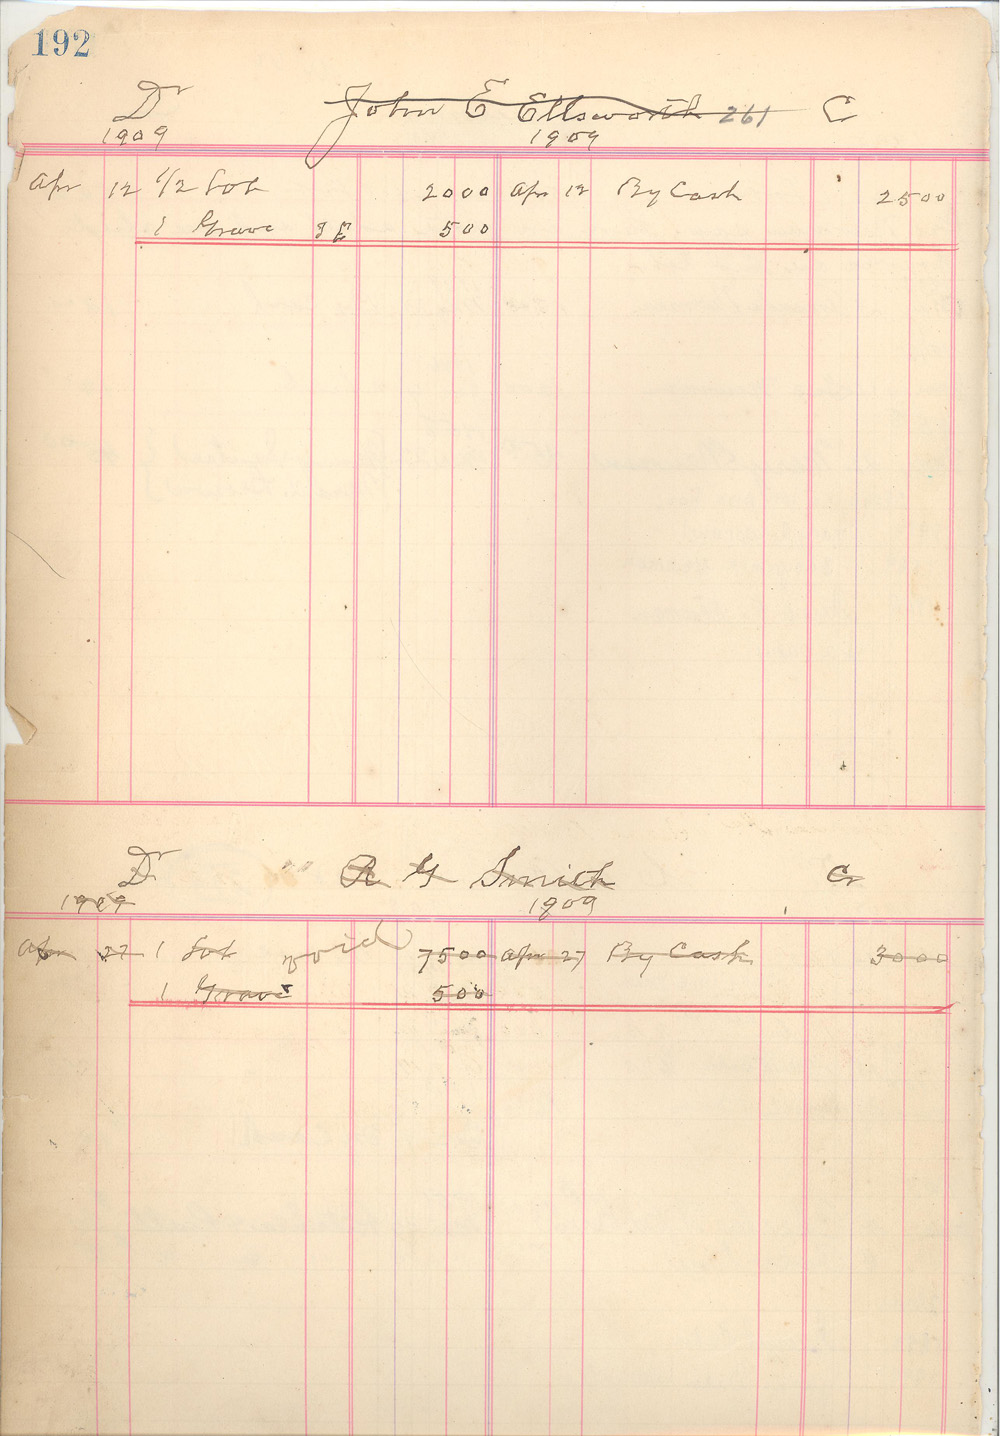 192
Dr John E Ellsworth 261 Cr
1909 1909
Apr 12 1/2 Lot 2000 Apr 12 By Cash 2500
1 Grave 500
Dr R G Smith Cr
1909 1909
Apr 27 1 Lot void 7500 Apr 27 By Cash 3000
1 Grave 500